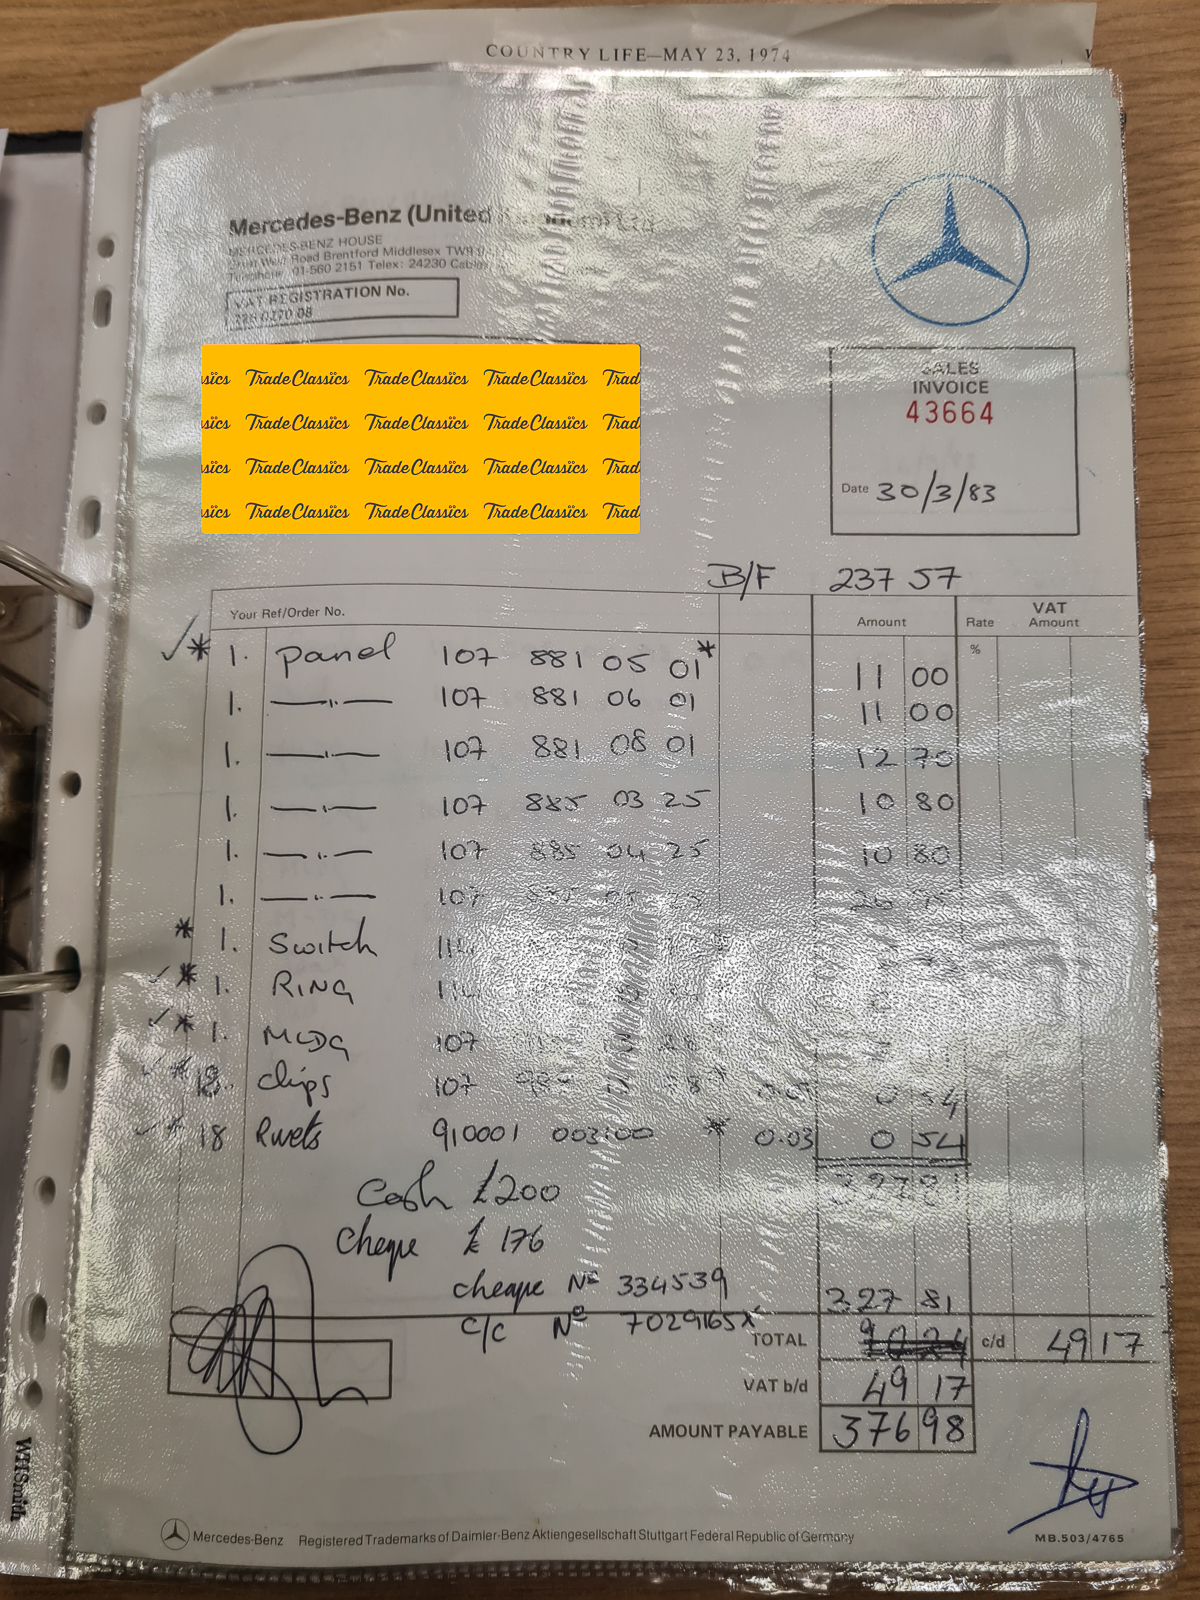 COUNTRY LIFE—MAY 23, 1974
Mercedes-Benz (United Kingdom) Ltd
MERCEDES-BENZ HOUSE
Great West Road Brentford Middlesex TW8
Telephone 01-560 2151 Telex: 24230 Cables
VAT REGISTRATION No.
TradeClassics TradeClassics TradeClassics
TradeClassics TradeClassics TradeClassics
TradeClassics TradeClassics TradeClassics
TradeClassics TradeClassics TradeClassics
SALES
INVOICE
43664
Date 30/3/83
B/F 237 57
Your Ref/Order No. Amount Rate VAT Amount
%
✓ * 1. Panel 107 881 05 01 * 11 00
1. —"— 107 881 06 01 11 00
1. —"— 107 881 08 01 12 70
1. —"— 107 885 03 25 10 80
1. —"— 107 885 04 25 10 80
1. —"— 107
* 1. Switch
✓ * 1. RING
✓ * 1. MLDG 107
✓ * 18. Clips 107 0 54
✓ * 18 Rivets 910001 003100 * 0.03 0 54
327 81
Cash £200
Cheque £ 176
cheque Nº 334539
327 81
C/C Nº 7029165X
TOTAL c/d 49 17
VAT b/d 49 17
AMOUNT PAYABLE 376 98
Mercedes-Benz Registered Trademarks of Daimler-Benz Aktiengesellschaft Stuttgart Federal Republic of Germany
MB.503/4765
WHSmith